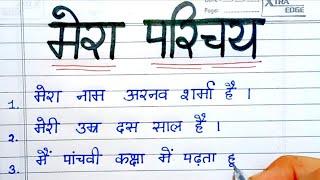 XTRA
EDGE
Page:
मेरा परिचय
1. मेरा नाम अरनव शर्मा है ।
2. मेरी उम्र दस साल है ।
3. मैं पांचवी कक्षा में पढ़ता हू